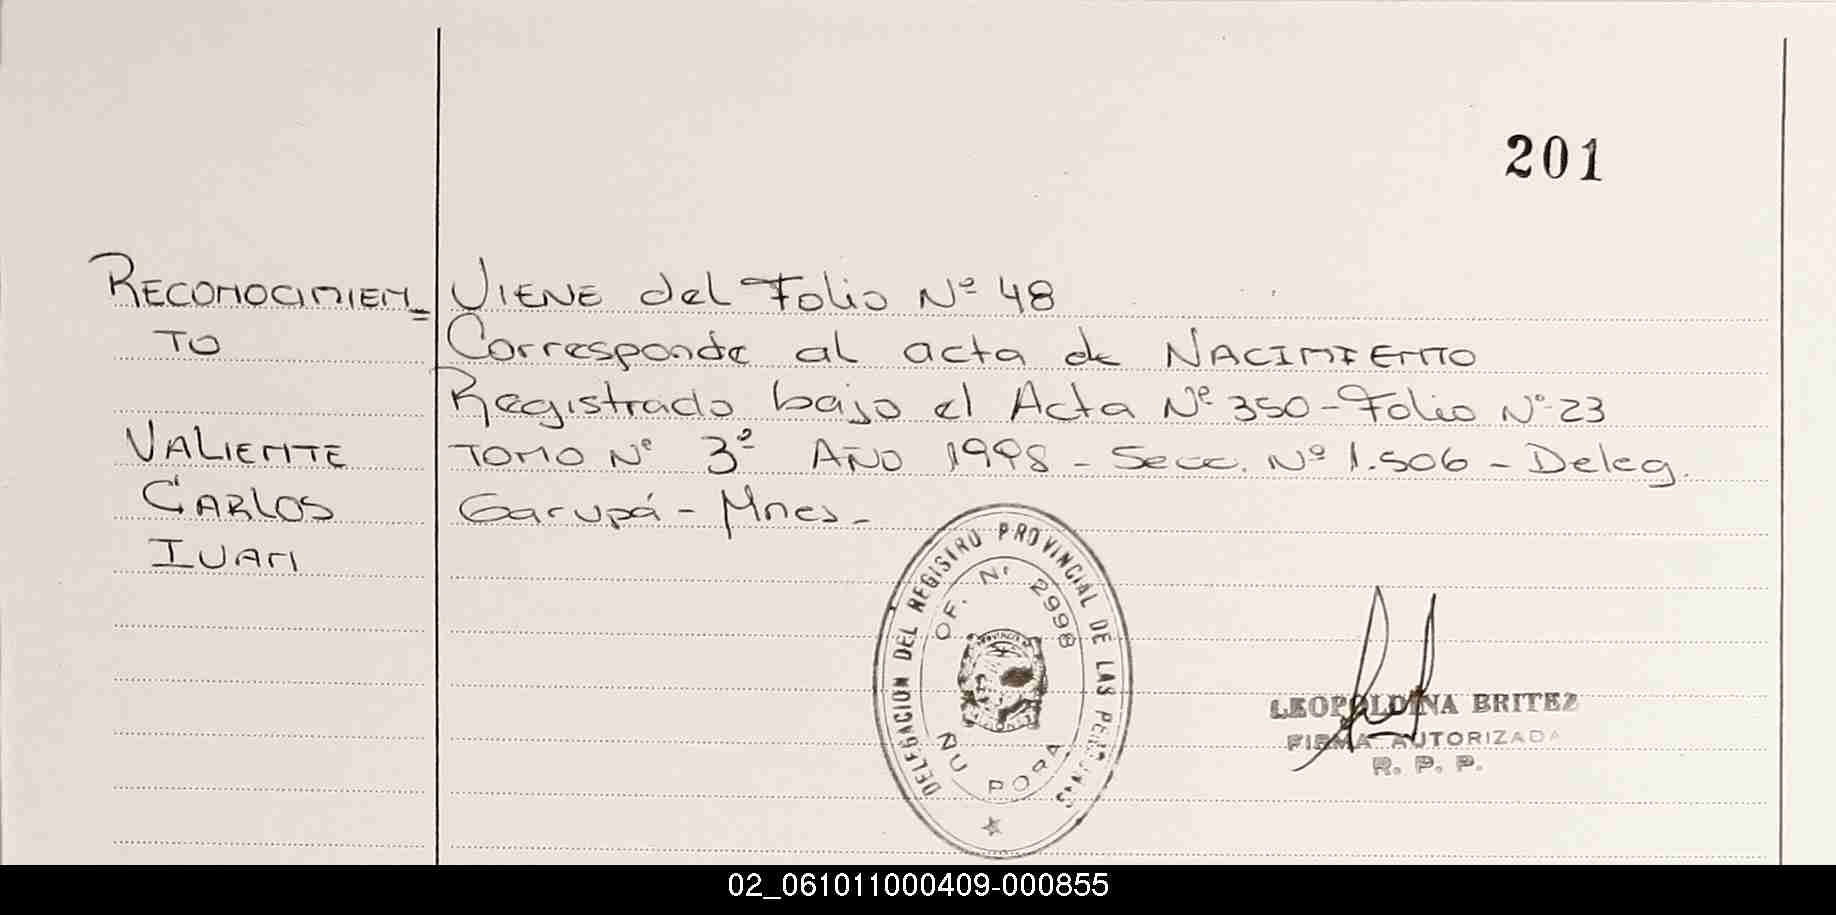 201
RECONOCIMIEN_
TO
VALIENTE
CARLOS
IVAN
VIENE del Folio Nº 48
Corresponde al acta de NACIMIENTO
Registrado bajo el Acta Nº 350 - Folio Nº 23
TOMO Nº 3º AÑO 1998 - Secc. Nº 1.506 - Deleg.
Garupá - Mnes -
DELEGACION DEL REGISTRO PROVINCIAL DE LAS PERSONAS
OF. Nº 2998
ÑU PORA
LEOPOLDINA BRITEZ
FIRMA AUTORIZADA
R. P. P.
02_061011000409-000855